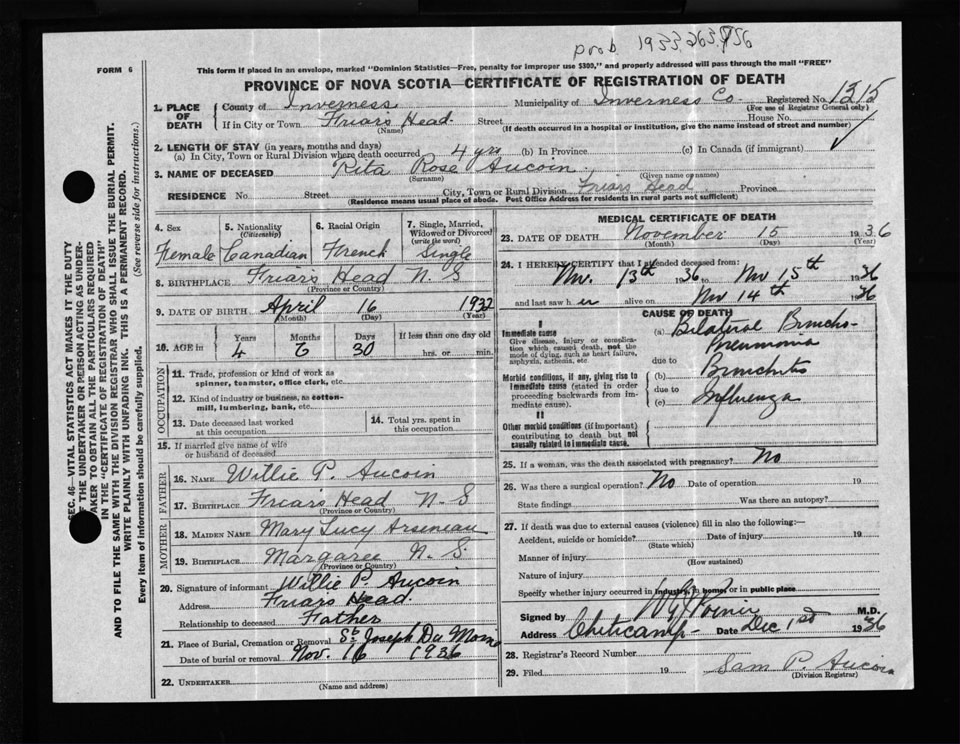 prob. 1933.263.736
FORM 6
This form if placed in an envelope, marked "Dominion Statistics—Free, penalty for improper use $300," and properly addressed will pass through the mail "FREE"
PROVINCE OF NOVA SCOTIA—CERTIFICATE OF REGISTRATION OF DEATH
1. PLACE OF DEATH
County of Inverness Municipality of Inverness Co. Registered No. 1315
(For use of Registrar General only)
If in City or Town Friar's Head Street House No.
(Name) (If death occurred in a hospital or institution, give the name instead of street and number)
2. LENGTH OF STAY (in years, months and days)
(a) In City, Town or Rural Division where death occurred 4 yrs (b) In Province (c) In Canada (if immigrant)
3. NAME OF DECEASED Rita Rose Aucoin
(Surname) (Given name or names)
RESIDENCE No. Street City, Town or Rural Division Friars Head Province
(Residence means usual place of abode. Post Office Address for residents in rural parts not sufficient)
4. Sex
Female
5. Nationality
(Citizenship)
Canadian
6. Racial Origin
French
7. Single, Married, Widowed or Divorced
(write the word)
Single
8. BIRTHPLACE Friar's Head N. S
(Province or Country)
9. DATE OF BIRTH April 16 1932
(Month) (Day) (Year)
10. AGE in Years Months Days If less than one day old
4 6 30 hrs. or min.
OCCUPATION
11. Trade, profession or kind of work as spinner, teamster, office clerk, etc.
12. Kind of industry or business, as cotton-mill, lumbering, bank, etc.
13. Date deceased last worked at this occupation
14. Total yrs. spent in this occupation
15. If married give name of wife or husband of deceased
FATHER
16. NAME Willie P. Aucoin
17. BIRTHPLACE Friars Head N. S
(Province or Country)
MOTHER
18. MAIDEN NAME Mary Lucy Arseneau
19. BIRTHPLACE Margaree N. S.
(Province or Country)
20. Signature of informant Willie P. Aucoin
Address Friars Head.
Relationship to deceased Father
21. Place of Burial, Cremation or Removal St. Joseph Du Moine
Date of burial or removal Nov. 16 1936
22. UNDERTAKER
(Name and address)
MEDICAL CERTIFICATE OF DEATH
23. DATE OF DEATH November 15 1936
(Month) (Day) (Year)
24. I HEREBY CERTIFY that I attended deceased from:
Nov. 13th 1936 to Nov 15th 1936
and last saw her alive on Nov 14th 1936
CAUSE OF DEATH
I
Immediate cause
Give disease, injury or complication which caused death, not the mode of dying, such as heart failure, asphyxia, asthenia, etc.
(a) Bilateral Broncho-
Pneumonia
due to
Morbid conditions, if any, giving rise to immediate cause (stated in order proceeding backwards from immediate cause).
(b) Bronchitis
due to
(c) Influenza
II
Other morbid conditions (if important) contributing to death but not causally related to immediate cause.
25. If a woman, was the death associated with pregnancy? No
26. Was there a surgical operation? No Date of operation 19
State findings Was there an autopsy?
27. If death was due to external causes (violence) fill in also the following:—
Accident, suicide or homicide? Date of injury 19
(State which)
Manner of injury
(How sustained)
Nature of injury
Specify whether injury occurred in industry, in home, or in public place
Signed by M.D.
Address Cheticamp Date Dec 1st 1936
28. Registrar's Record Number
29. Filed 19 Sam P. Aucoin
(Division Registrar)
SEC. 46—VITAL STATISTICS ACT MAKES IT THE DUTY
OF THE UNDERTAKER OR PERSON ACTING AS UNDER-
TAKER TO OBTAIN ALL THE PARTICULARS REQUIRED
IN THE "CERTIFICATE OF REGISTRATION OF DEATH"
AND TO FILE THE SAME WITH THE DIVISION REGISTRAR WHO SHALL ISSUE THE BURIAL PERMIT.
WRITE PLAINLY WITH UNFADING INK. THIS IS A PERMANENT RECORD.
Every item of information should be carefully supplied. (See reverse side for instructions.)